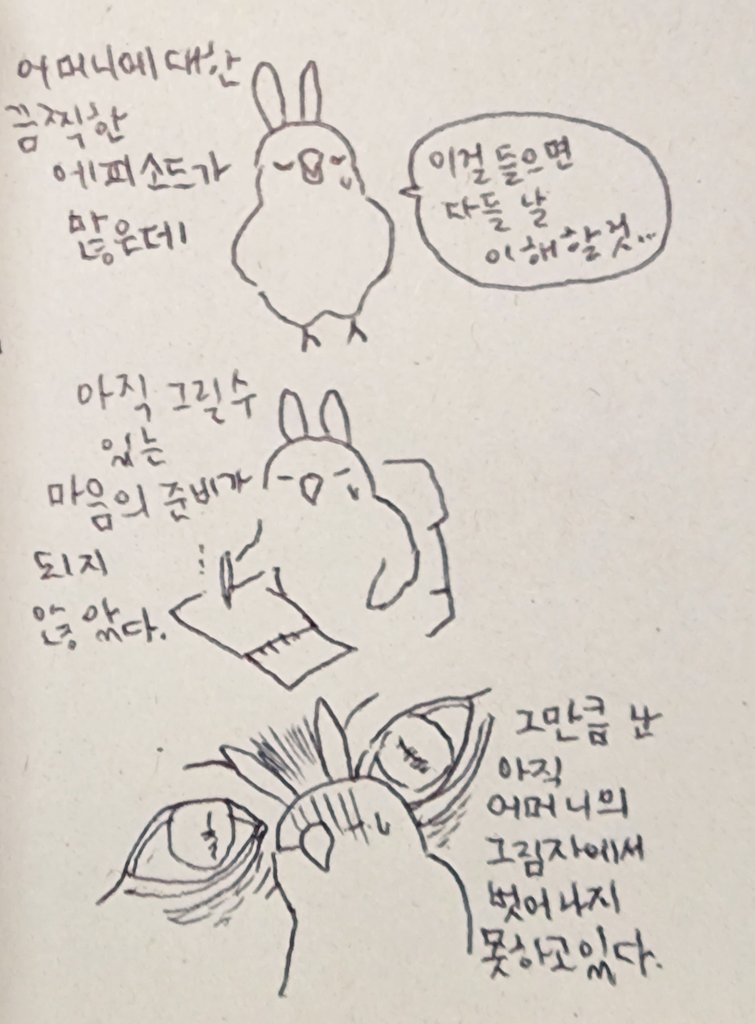 어머니에 대한
끔찍한
에피소드가
많은데
이걸 들으면
다들 날
이해할 것...
아직 그릴 수
있는
마음의 준비가
되지
않았다.
그만큼 난
아직
어머니의
그림자에서
벗어나지
못하고 있다.